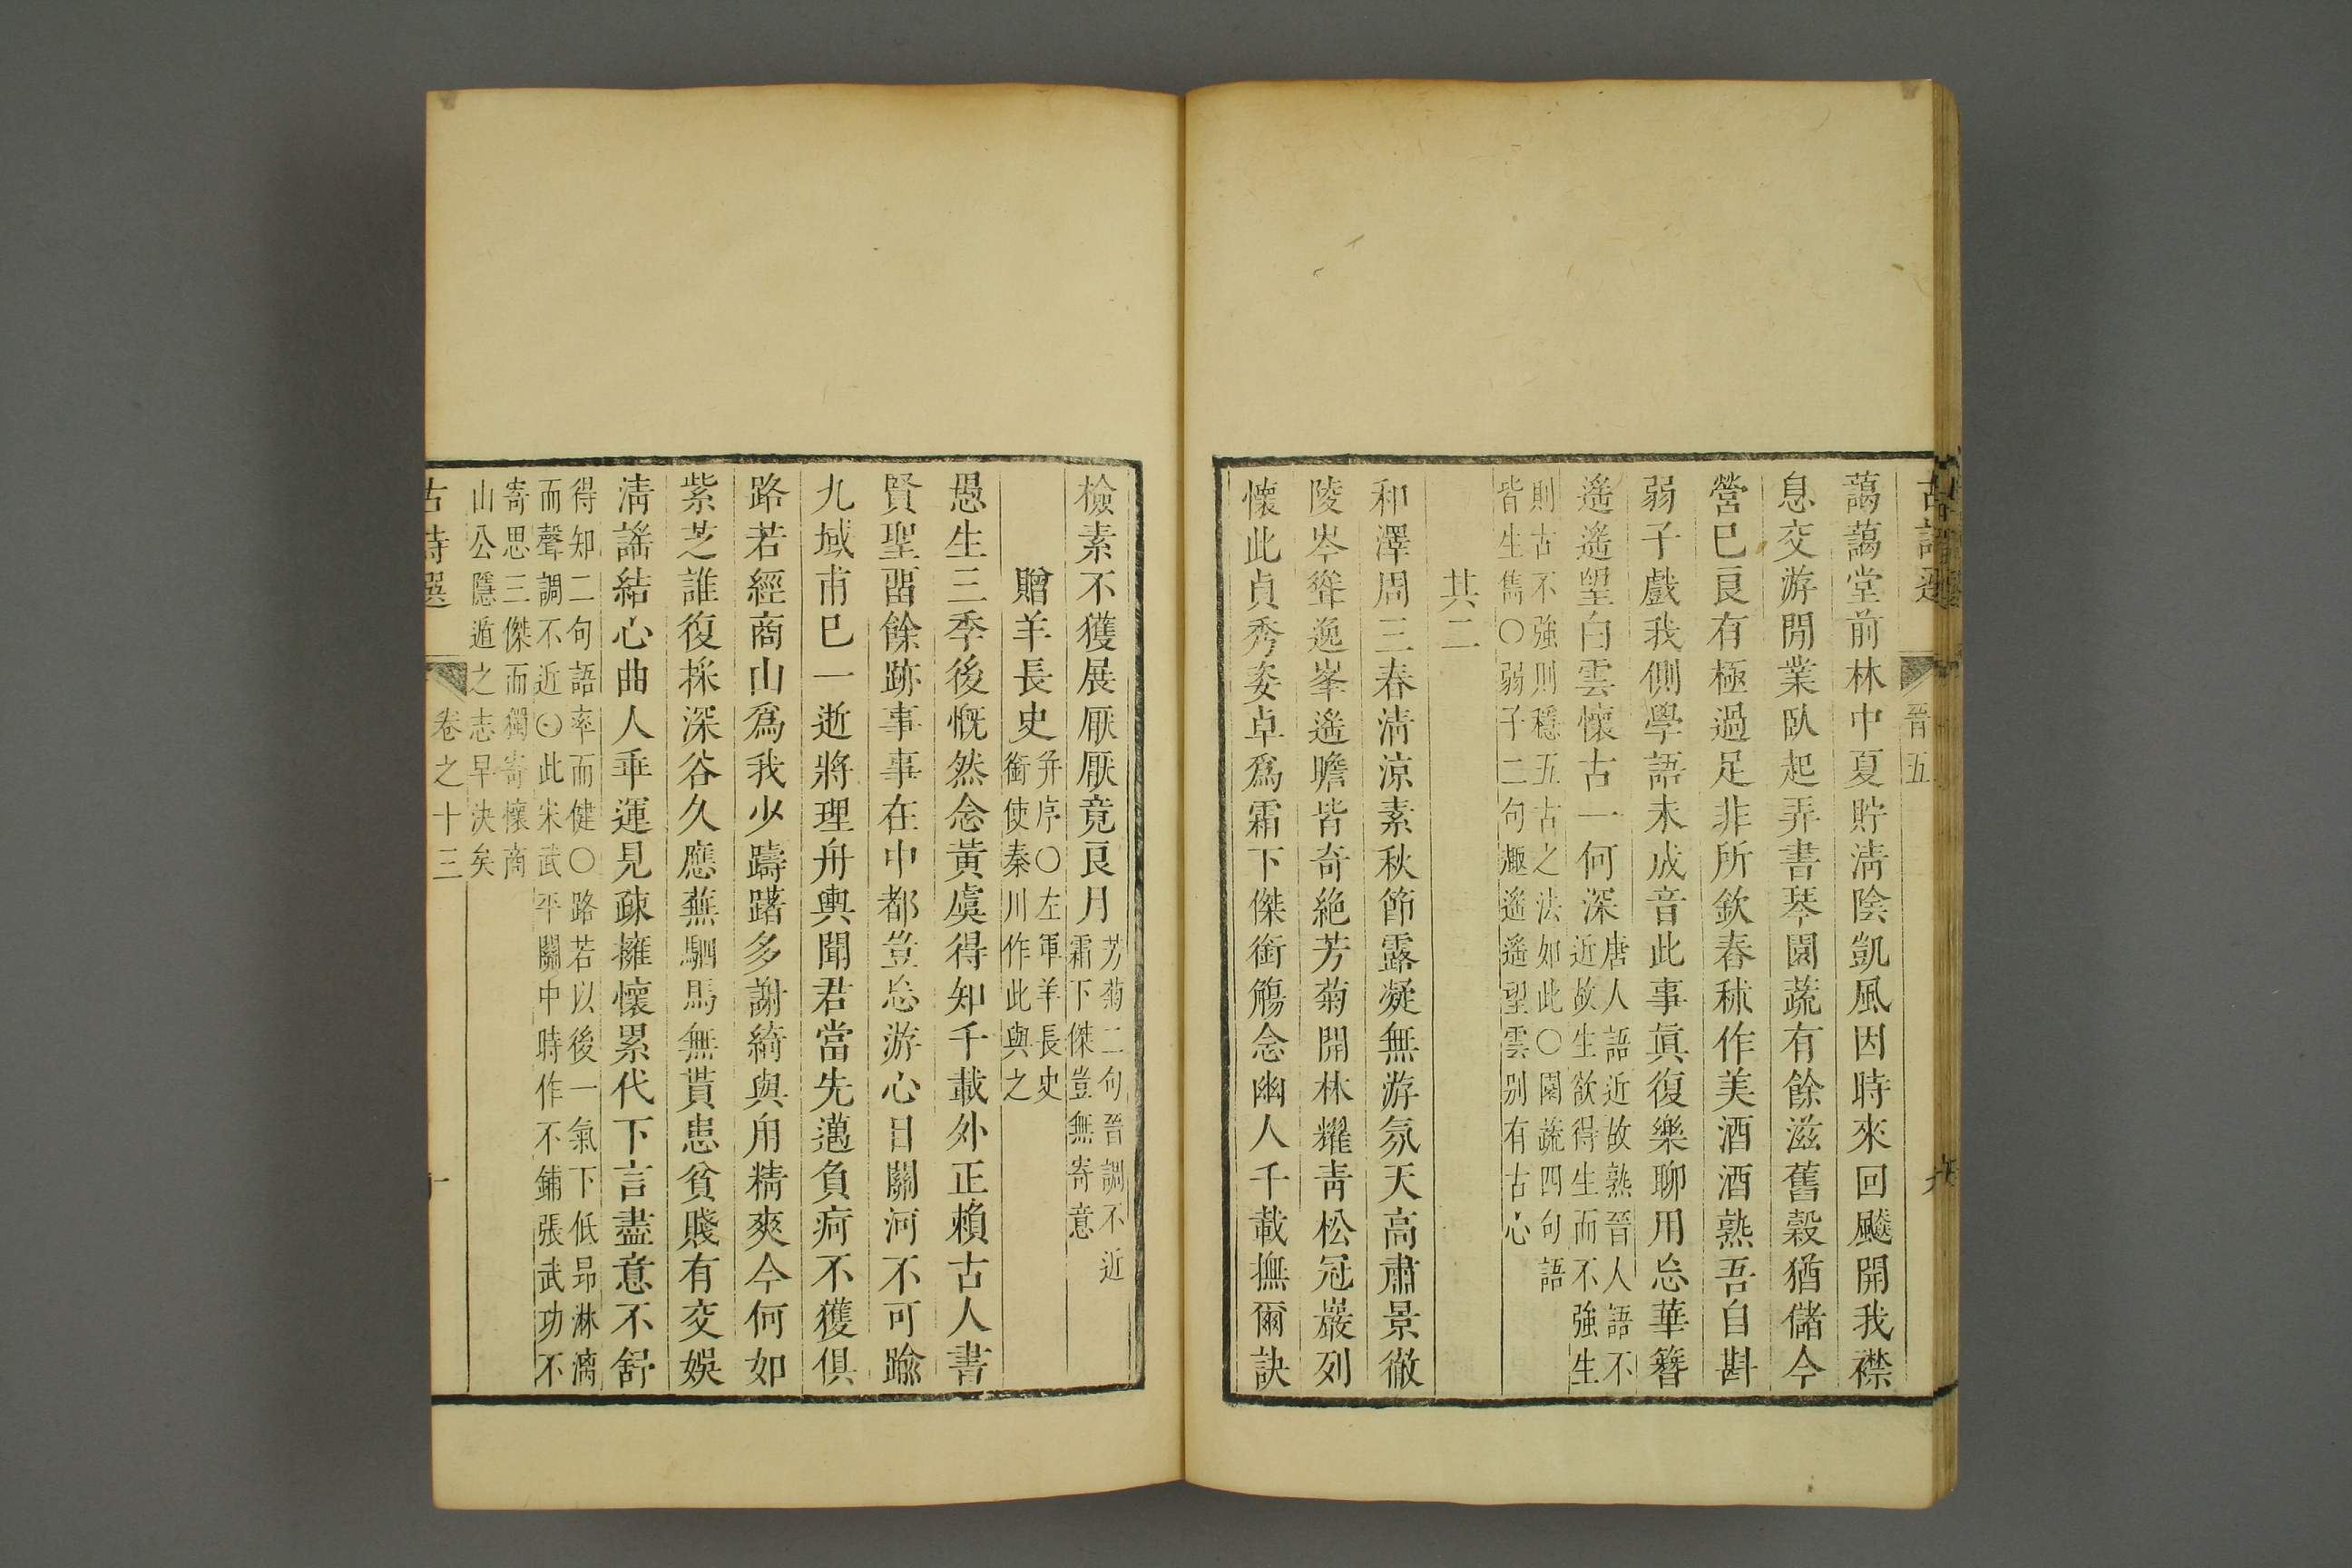 古詩選 晉五 九
藹藹堂前林中夏貯淸陰凱風因時來回飇開我襟
息交游閒業臥起弄書琴園蔬有餘滋舊穀猶儲今
營已良有極過足非所欽舂秫作美酒酒熟吾自斟
弱子戲我側學語未成音此事眞復樂聊用忘華簪
遙遙望白雲懷古一何深
唐人語近故熟晉人語不
近故生欲得生而不強生
則古不強則穩五古之法如此○園蔬四句語
皆生雋○弱子二句趣遙遙望雲别有古心
其二
和澤周三春淸涼素秋節露凝無游氛天高肅景徹
陵岑聳逸峯遙瞻皆奇絶芳菊開林耀靑松冠巖列
懷此貞秀姿卓爲霜下傑銜觴念幽人千載撫爾訣
檢素不獲展厭厭竟良月
芳菊二句晉調不近
霜下傑豈無寄意
贈羊長史
幷序○左軍羊長史
銜使秦川作此與之
愚生三季後慨然念黃虞得知千載外正賴古人書
賢聖畱餘跡事事在中都豈忘游心目關河不可踰
九域甫已一逝將理舟輿聞君當先邁負痾不獲俱
路若經商山爲我少躊躇多謝綺與甪精爽今何如
紫芝誰復採深谷久應蕪駟馬無貰患貧賤有交娛
淸謠結心曲人乖運見疎擁懷累代下言盡意不舒
得知二句語率而健○路若以後一氣下低昻淋漓
而聲調不近○此宋武平關中時作不鋪張武功不
寄思三傑而獨寄懷商
山公隱遁之志早決矣
古詩選 卷之十三 十